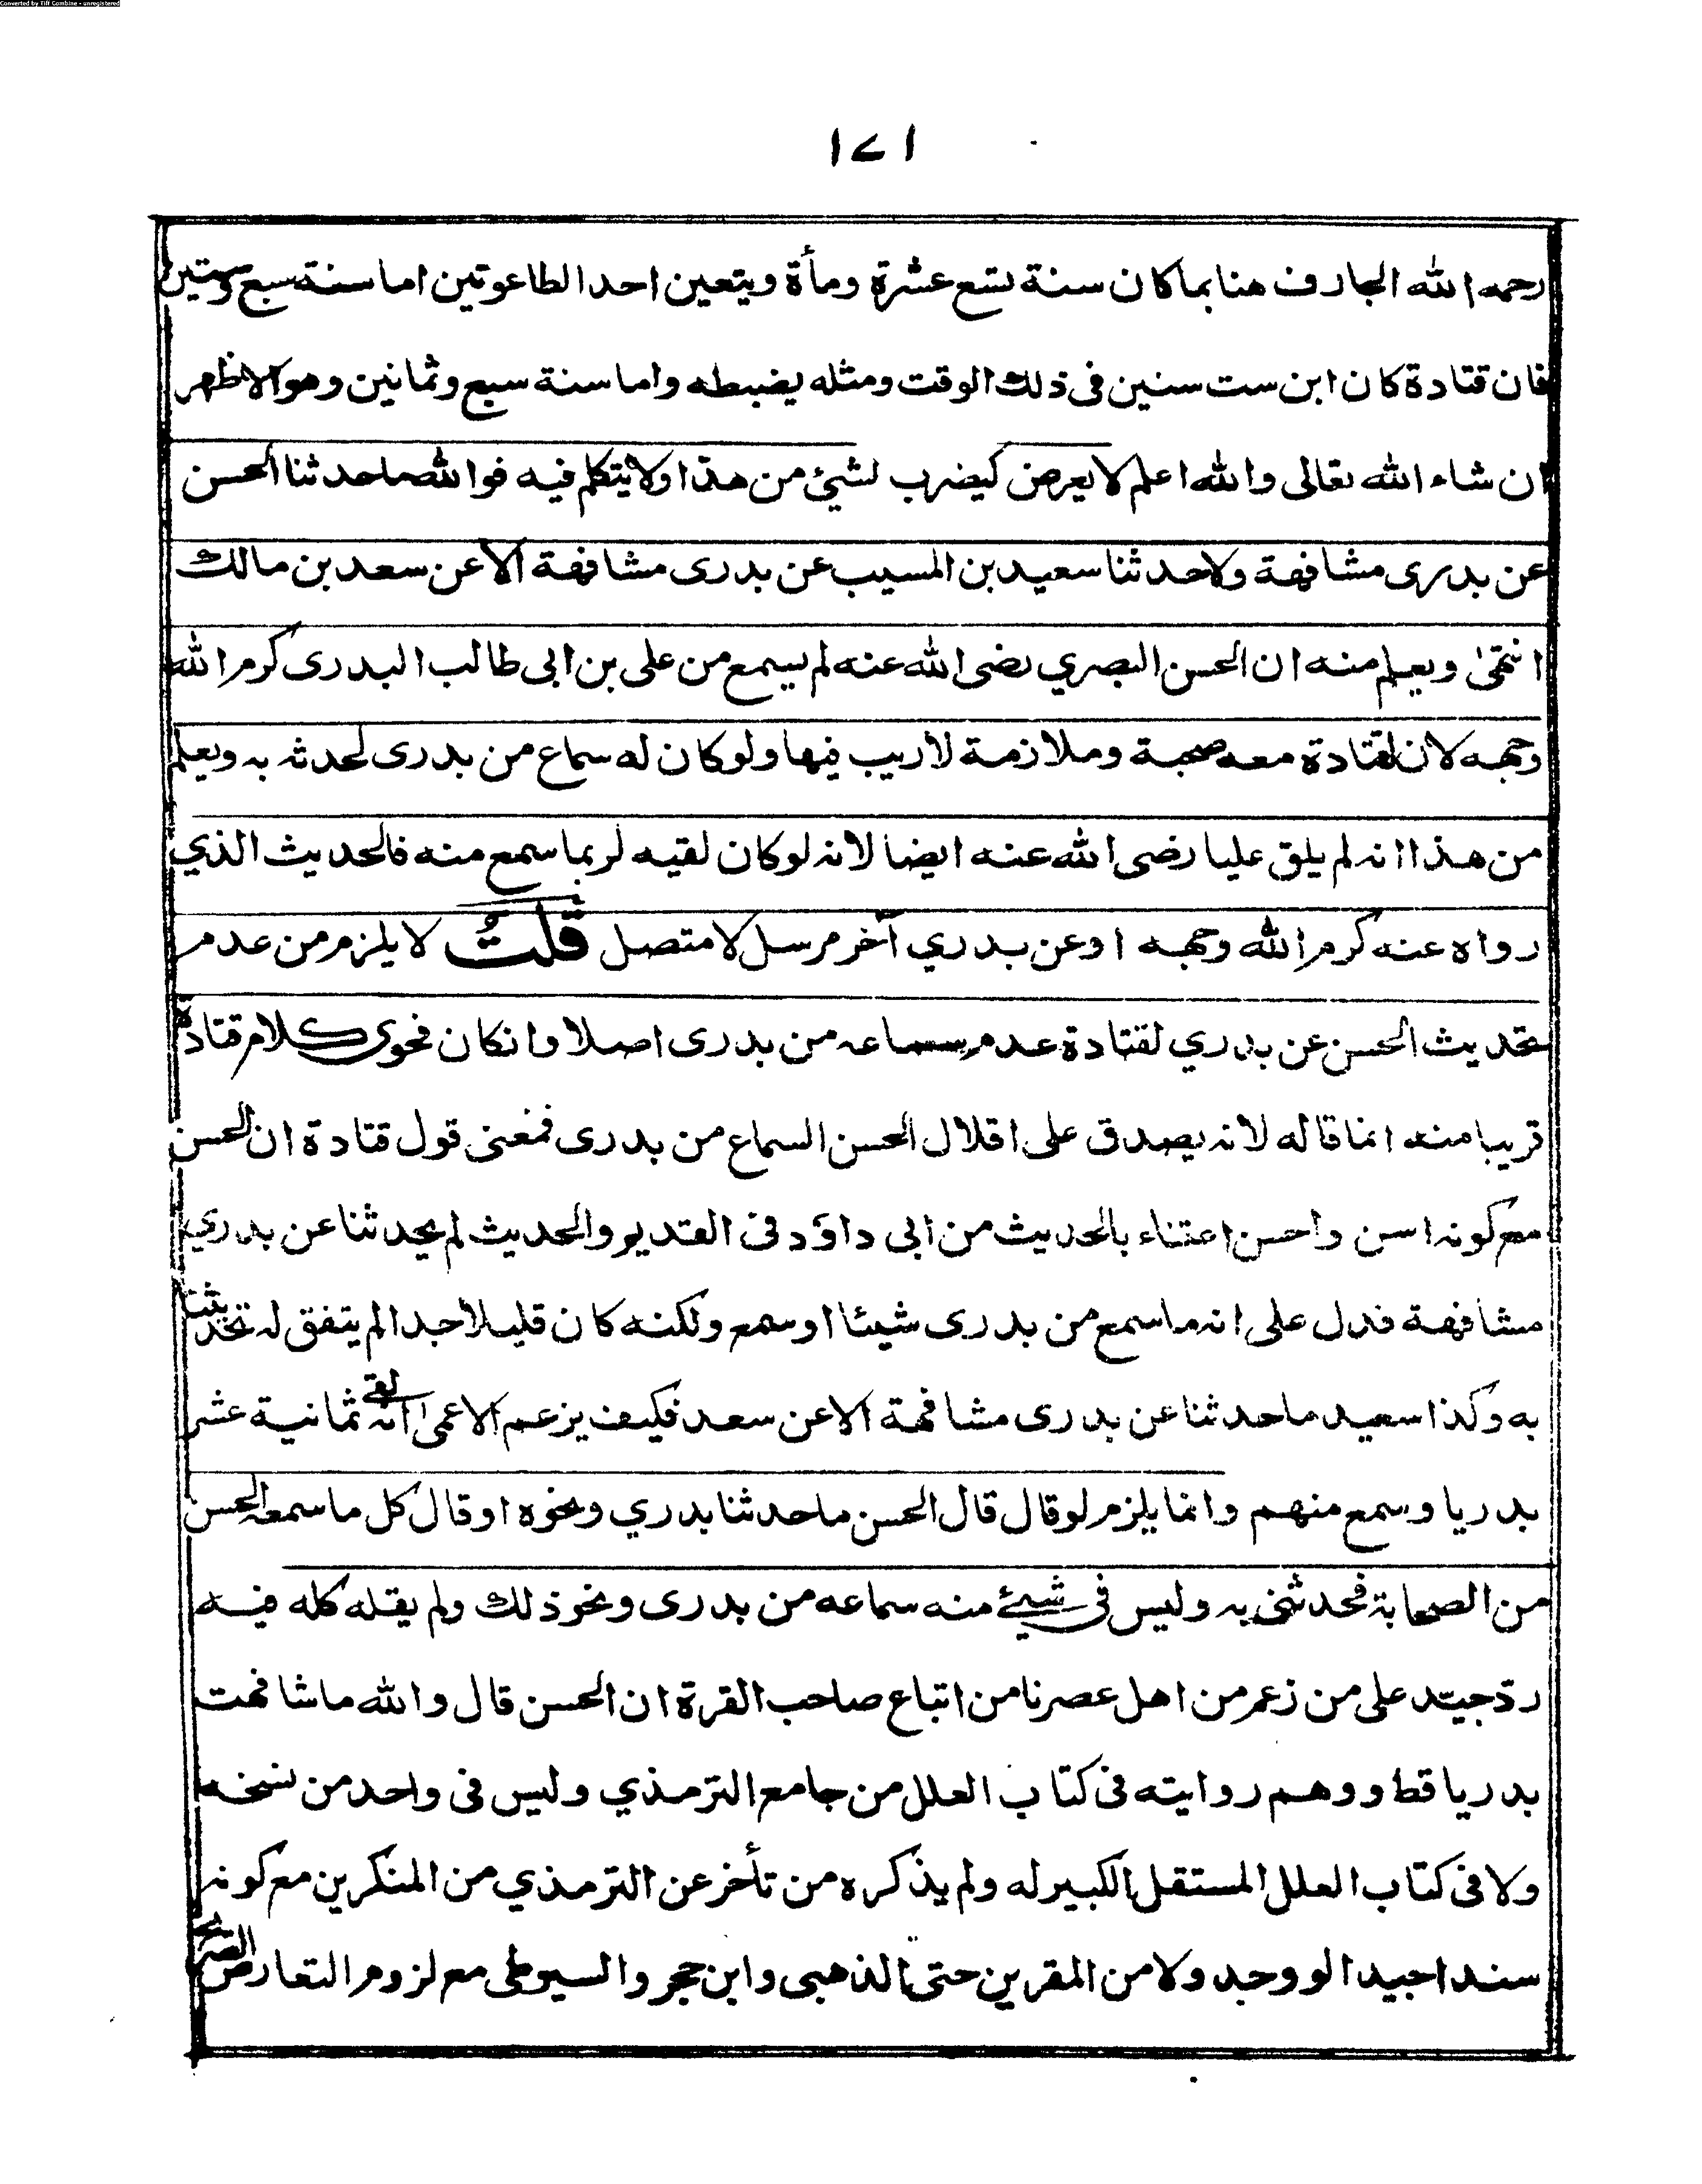 Converted by Tiff Combine - unregistered
١٧١
رحمه الله الجارف هنا بما كان سنة تسع عشرة ومأة ويتعين احد الطاعوتين اما سنة سبع وستين
فان قتادة كان ابن ست سنين فى ذلك الوقت ومثله يضبطه واما سنة سبع وثمانين وهو الاظهر
ان شاء الله تعالى والله اعلم لا يعرض كيضرب لشئ من هذا ولا يتكلم فيه فوالله ما حدثنا الحسن
عن بدرى مشافهة ولا حدثنا سعيد بن المسيب عن بدرى مشافهة الا عن سعد بن مالك
انتهىٰ ويعلم منه ان الحسن البصري رضى الله عنه لم يسمع من على بن ابى طالب البدرى كرم الله
وجهه لان لقتادة معه صحبة وملازمة لا ريب فيها ولو كان له سماع من بدرى لحدثه به ويعلم
من هذا انه لم يلق عليا رضى الله عنه ايضا لانه لو كان لقيه لربما سمع منه فالحديث الذي
رواه عنه كرم الله وجهه او عن بدري آخر مرسل لا متصل قلتُ لا يلزم من عدم
تحديث الحسن عن بدري لقتادة عدم سماعه من بدرى اصلا وان كان فحوى كلام قتادة
قريبا منه انما قاله لانه يصدق على اقلال الحسن السماع من بدرى فمعنى قول قتادة ان الحسن
مع كونه اسن واحسن اعتناء بالحديث من ابى داؤد فى القديم والحديث لم يحدثنا عن بدري
مشافهة فدل على انه ما سمع من بدرى شيئا او سمع ولكنه كان قليلا جدا لم يتفق له تحديثنا
به وكذا سعيد ما حدثنا عن بدرى مشافهة الا عن سعد فكيف يزعم الاعمىٰ انه لقى ثمانية عشر
بدريا وسمع منهم وانما يلزم لو قال قال الحسن ما حدثنا بدري ونحوه او قال كل ما سمعه الحسن
من الصحابة فحدثنى به وليس فى شيئ منه سماعه من بدرى ونحو ذلك ولم يقله كله فيه
ردّ جيّد على من زعم من اهل عصرنا من اتباع صاحب القرة ان الحسن قال والله ما شافهت
بدريا قط ووهم روايته فى كتاب العلل من جامع الترمذي وليس فى واحد من نسخه
ولا فى كتاب العلل المستقل الكبير له ولم يذكره من تأخر عن الترمذي من المنكرين مع كونه
سندا جيدا لو وجد ولا من المقرين حتى الذهبى وابن حجر والسيوطى مع لزوم التعارض الصريح